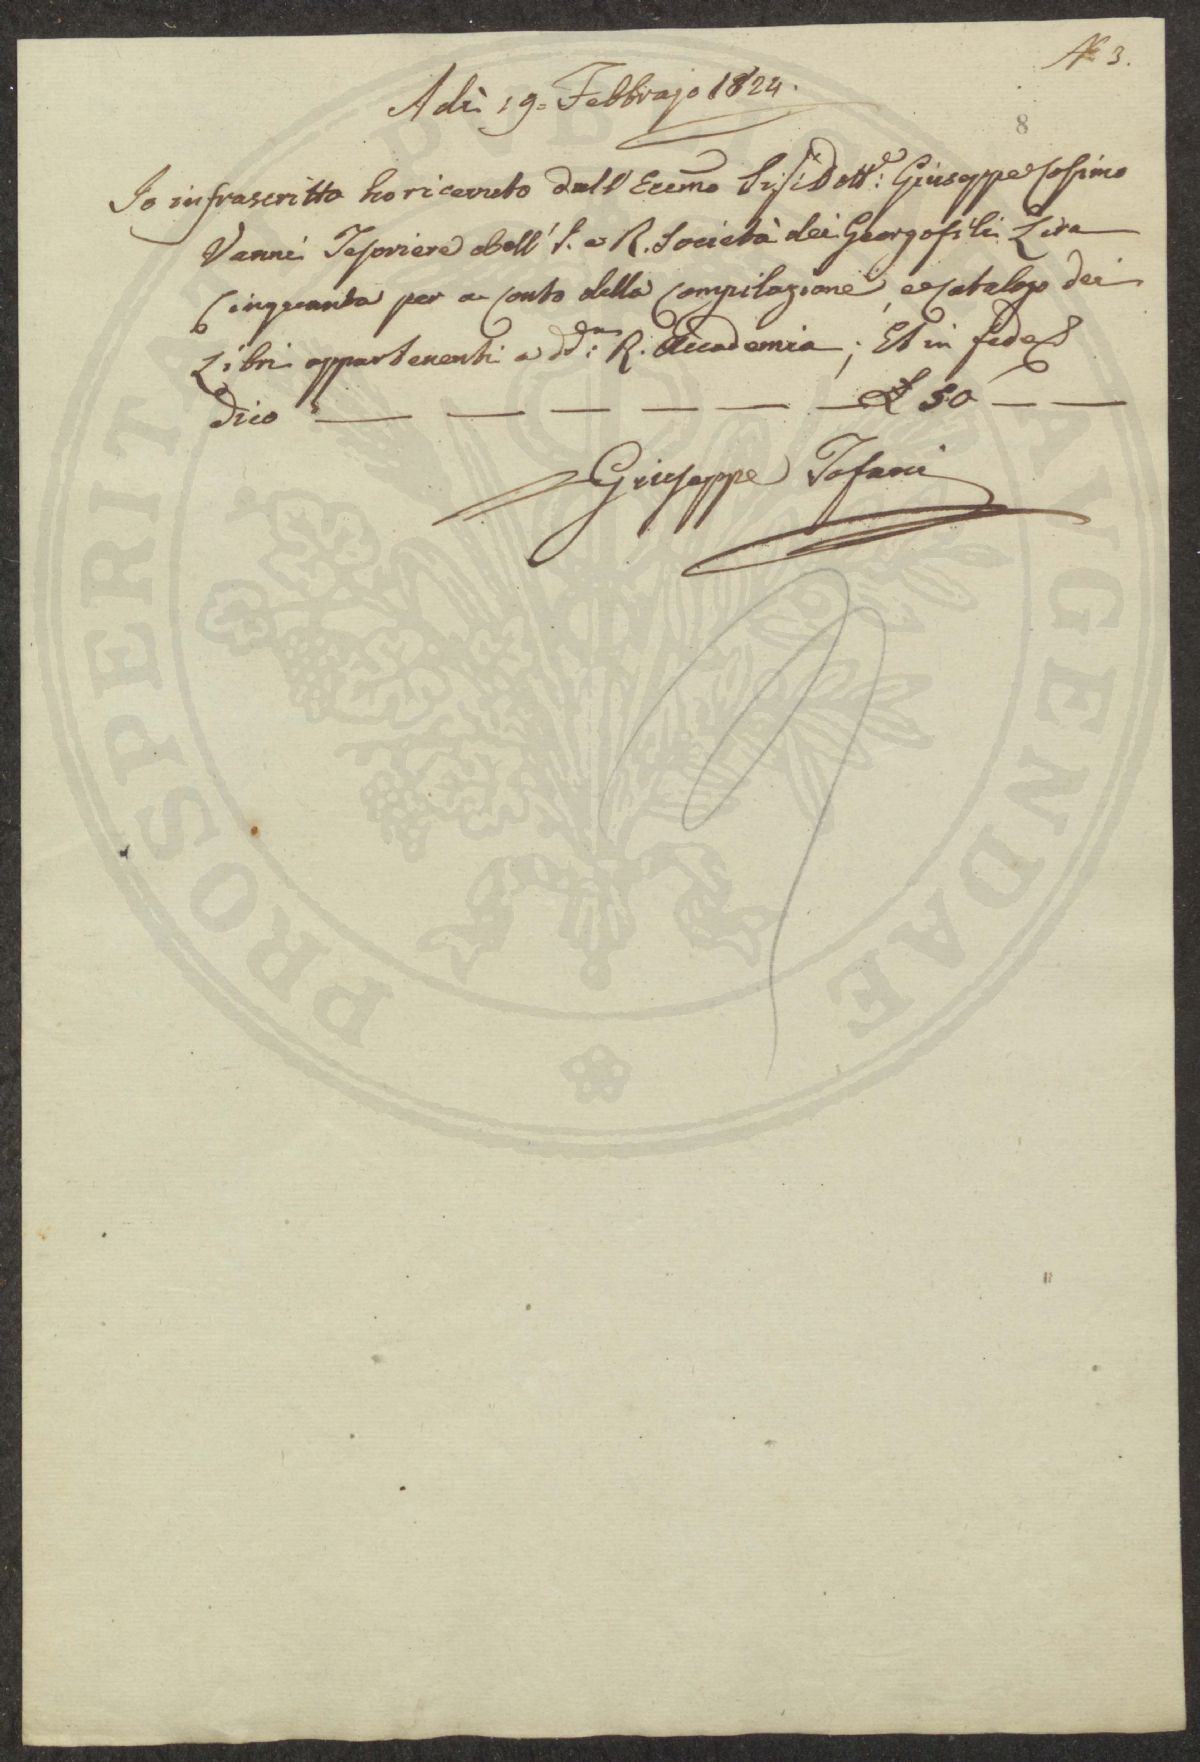 N.° 3.
8
Adì 19 = Febbrajo 1824.
Io infrascritto ho ricevuto dall' Eccmo Sig.re Dott.e: Giuseppe Cosimo
Vanni Tesoriere dell' I. e R. Società dei Georgofili Lire
Cinquanta per a Conto della Compilazione, e Catalogo dei
Libri appartenenti a dd.a: R. Accademia; Et in fede
Dico — — — — — — £ 50 — —
Giuseppe Tofani
PROSPERITATI PUBLICAE AUGENDAE